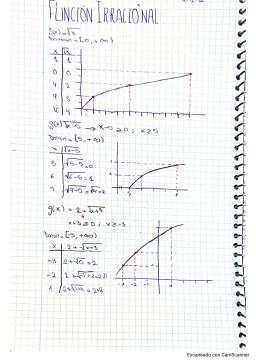 FUNCIÓN IRRACIONAL
g(x)=√x
Domin=[0,+∞)
x √x
1 1
0 0
4 2
9 3
16 4
g(x)√x-5 → x-5≥0; x≥5
Domin=[5,+∞)
x √x-5
5 √5-5=0
6 √6-5=1
9 √9-5=√4=2
g(x) = 2+√x+3
x+3≥0; x≥-3
x 2+√x+3
-3 2+√0=2
-2
1
-3 -2 -1
Escaneado con CamScanner